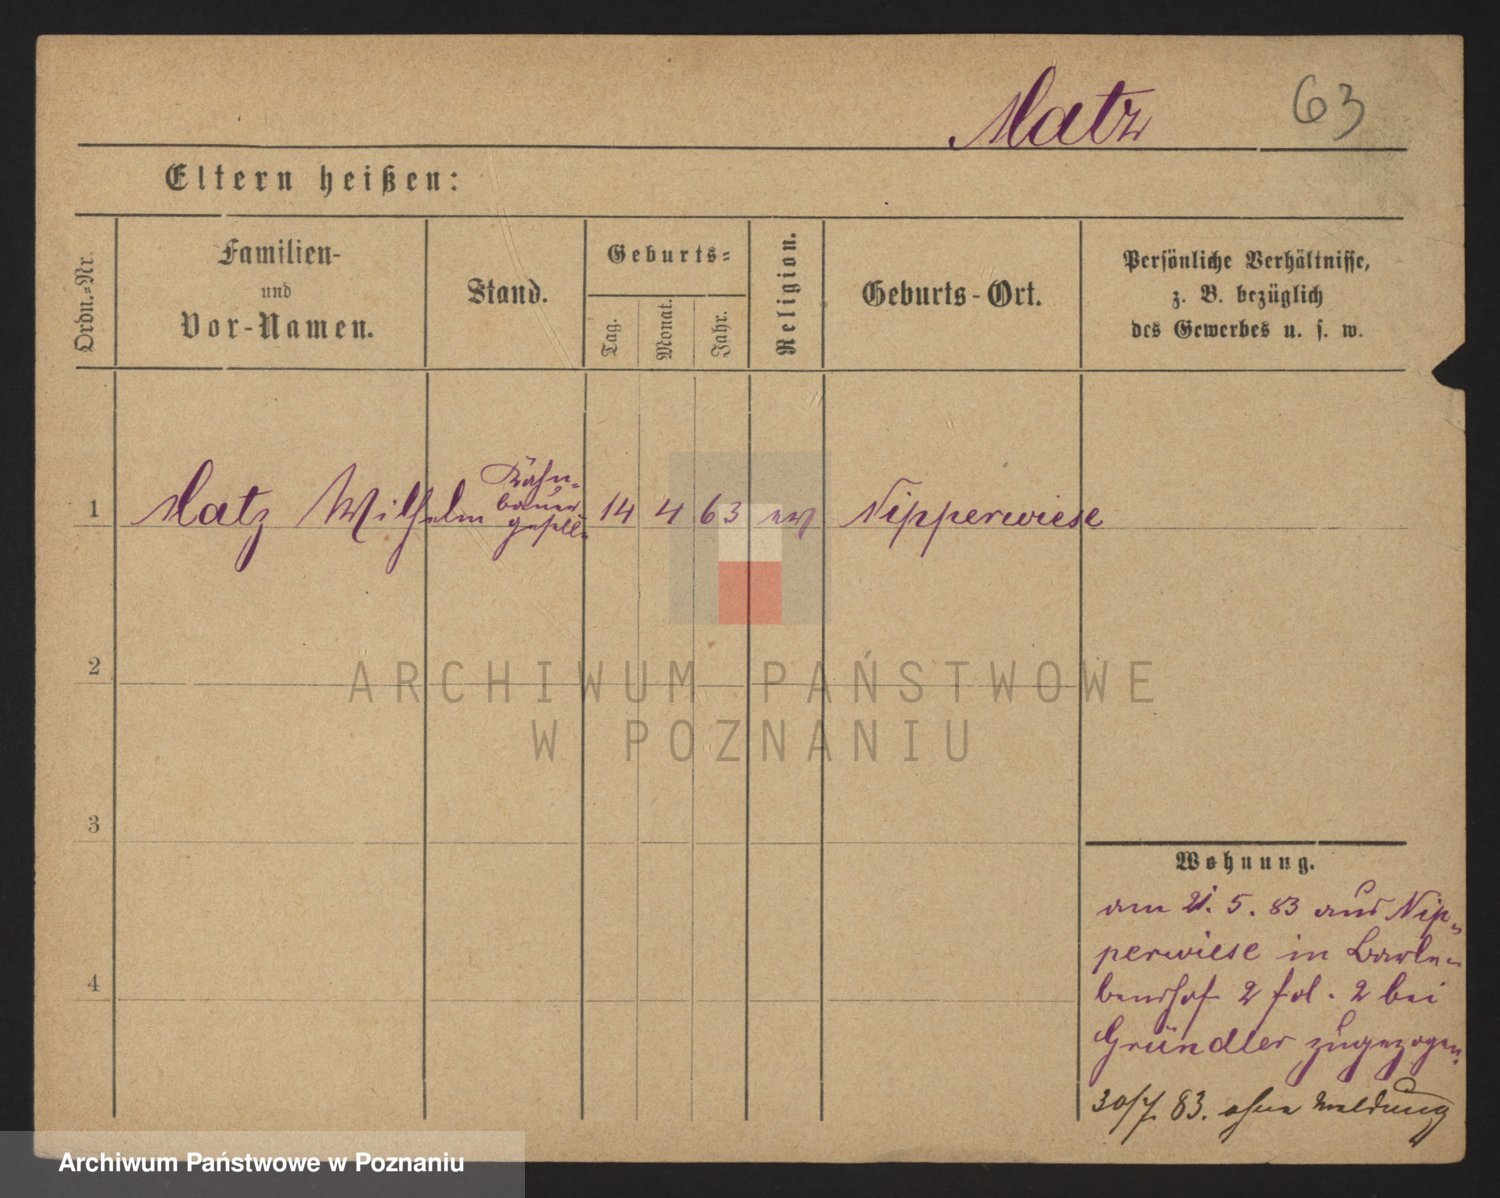 Matz 63
Eltern heißen:
Ordn.-Nr.
Familien-
und
Vor-Namen.
Stand.
Geburts-
Tag.
Monat.
Jahr.
Religion.
Geburts-Ort.
Persönliche Verhältnisse,
z. B. bezüglich
des Gewerbes u. s. w.
1 Matz Wilhelm Kahn-
bauer
gesell 14 4 63 ev Nipperwiese
2
3
4
ARCHIWUM PAŃSTWOWE
W POZNANIU
Wohnung.
am 21. 5. 83 aus Nip-
perwiese in
2 fol. 2 bei
Gründler zugezogen.
30/7. 83. ohne Meldung
Archiwum Państwowe w Poznaniu